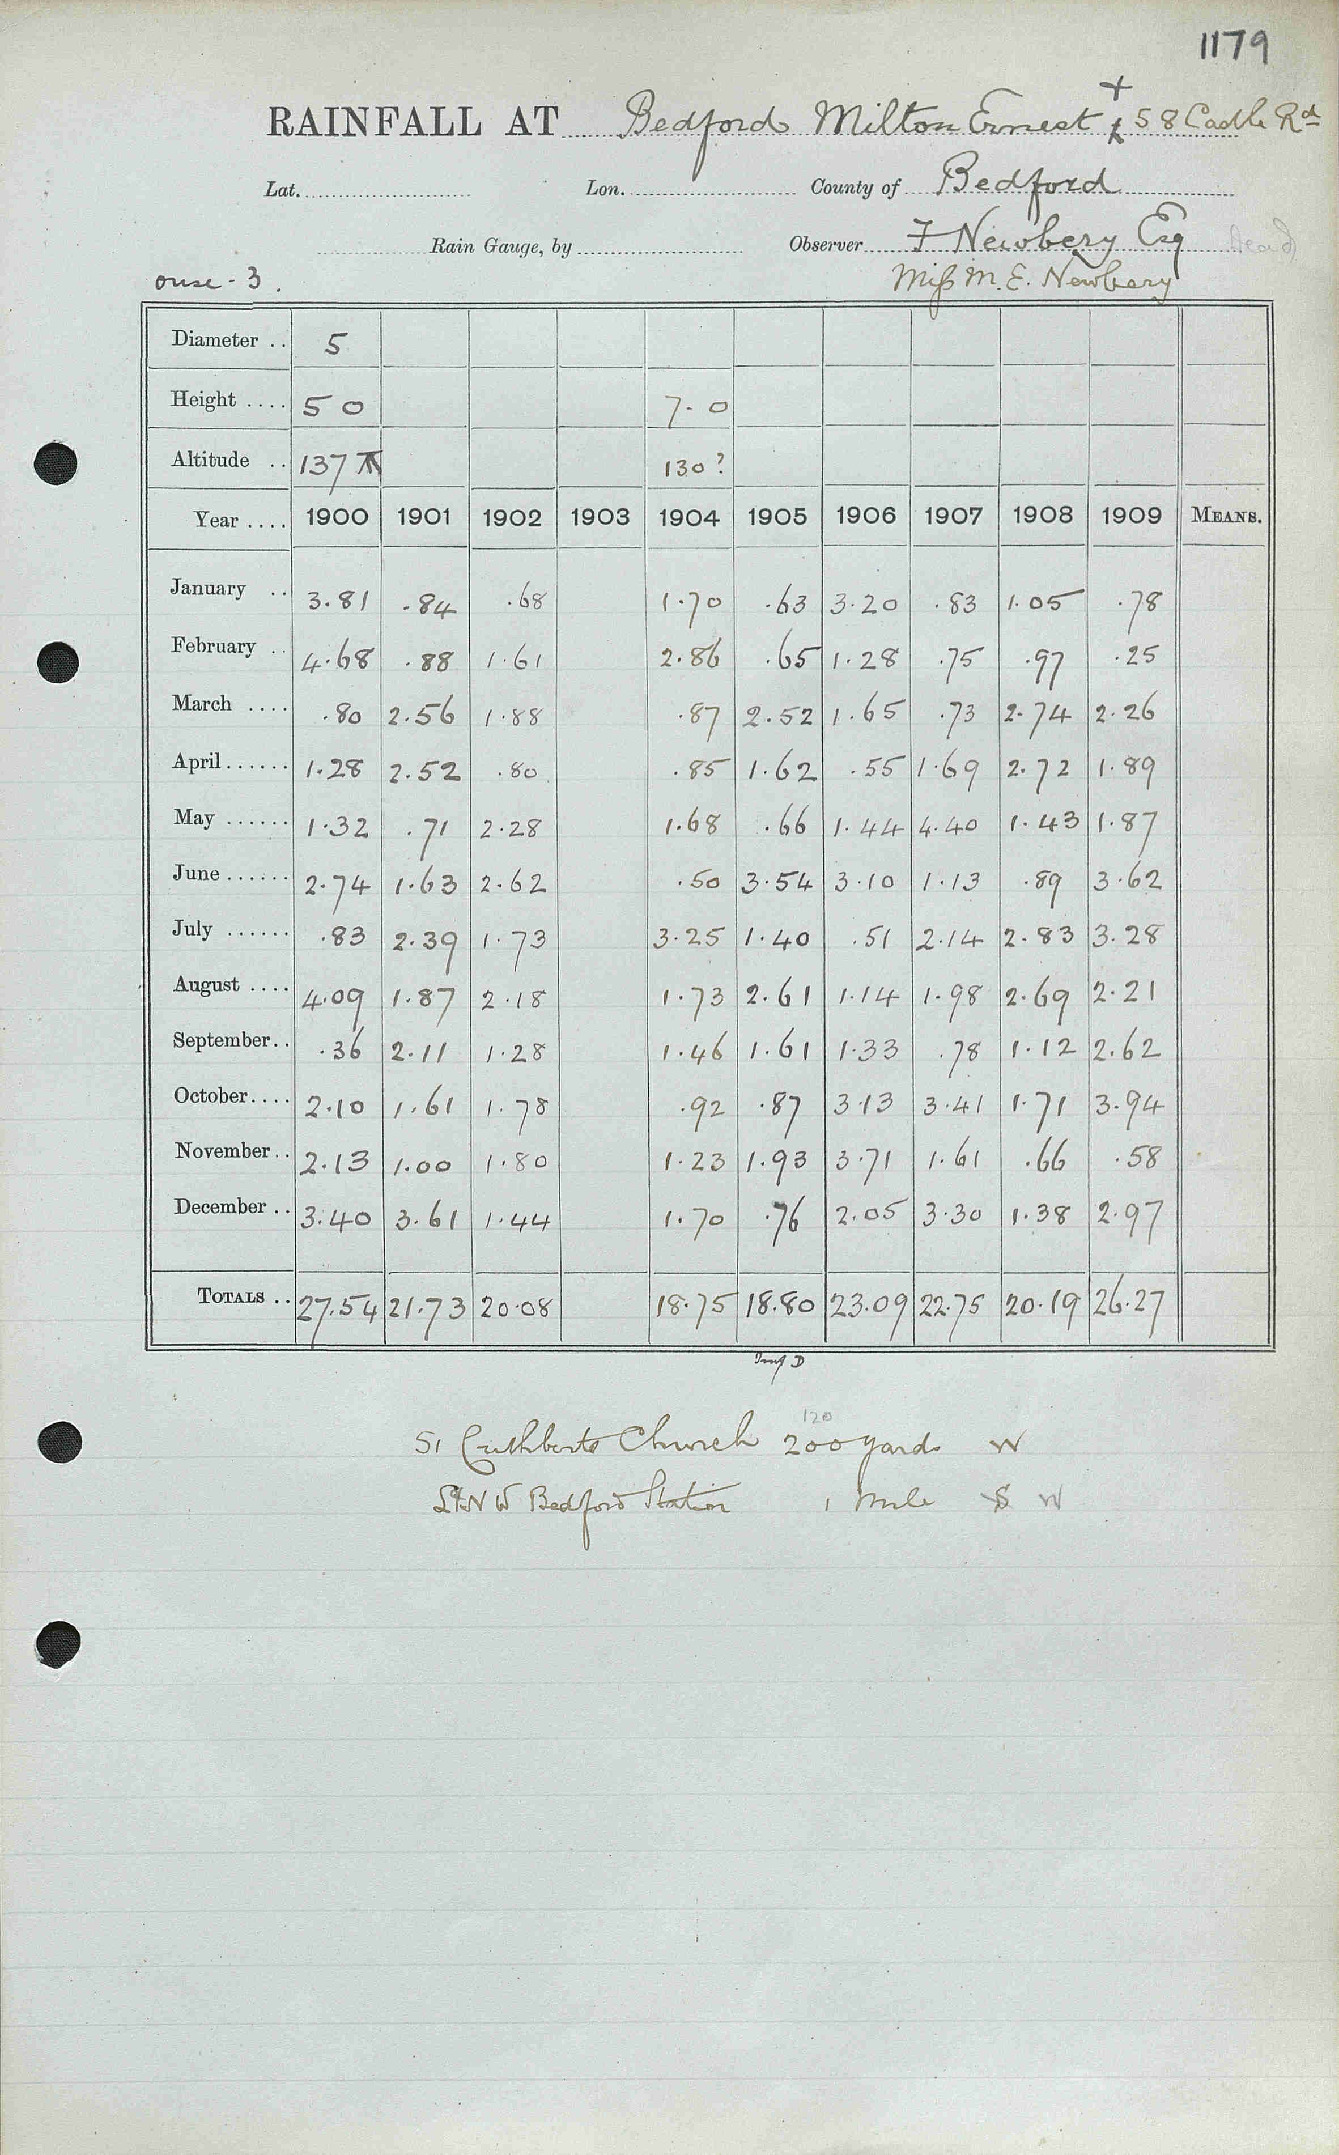 1179
RAINFALL AT Bedford Milton Ernest + 58 Castle Rd
Lat. Lon. County of Bedford
Rain Gauge, by Observer F Newbery Esq Dead
ouse - 3. Miss M. E. Newbery
Diameter .. 5
Height .... 5 0 7 - 0
Altitude .. 137 130?
Year .... 1900 1901 1902 1903 1904 1905 1906 1907 1908 1909 MEANS.
January .. 3.81 .84 .68 1.70 .63 3.20 .83 1.05 .78
February .. 4.68 .88 1.61 2.86 .65 1.28 .75 .97 .25
March .... .80 2.56 1.88 .87 2.52 1.65 .73 2.74 2.26
April ...... 1.28 2.52 .80 .85 1.62 .55 1.69 2.72 1.89
May ...... 1.32 .71 2.28 1.68 .66 1.44 4.40 1.43 1.87
June ...... 2.74 1.63 2.62 .50 3.54 3.10 1.13 .89 3.62
July ...... .83 2.39 1.73 3.25 1.40 .51 2.14 2.83 3.28
August .... 4.09 1.87 2.18 1.73 2.61 1.14 1.98 2.69 2.21
September .. .36 2.11 1.28 1.46 1.61 1.33 .78 1.12 2.62
October .... 2.10 1.61 1.78 .92 .87 3.13 3.41 1.71 3.94
November .. 2.13 1.00 1.80 1.23 1.93 3.71 1.61 .66 .58
December .. 3.40 3.61 1.44 1.70 .76 2.05 3.30 1.38 2.97
TOTALS .. 27.54 21.73 20.08 18.75 18.80 23.09 22.75 20.19 26.27
120
St Cuthberts Church 200 yards W
L&NW Bedford Station 1 mile S W